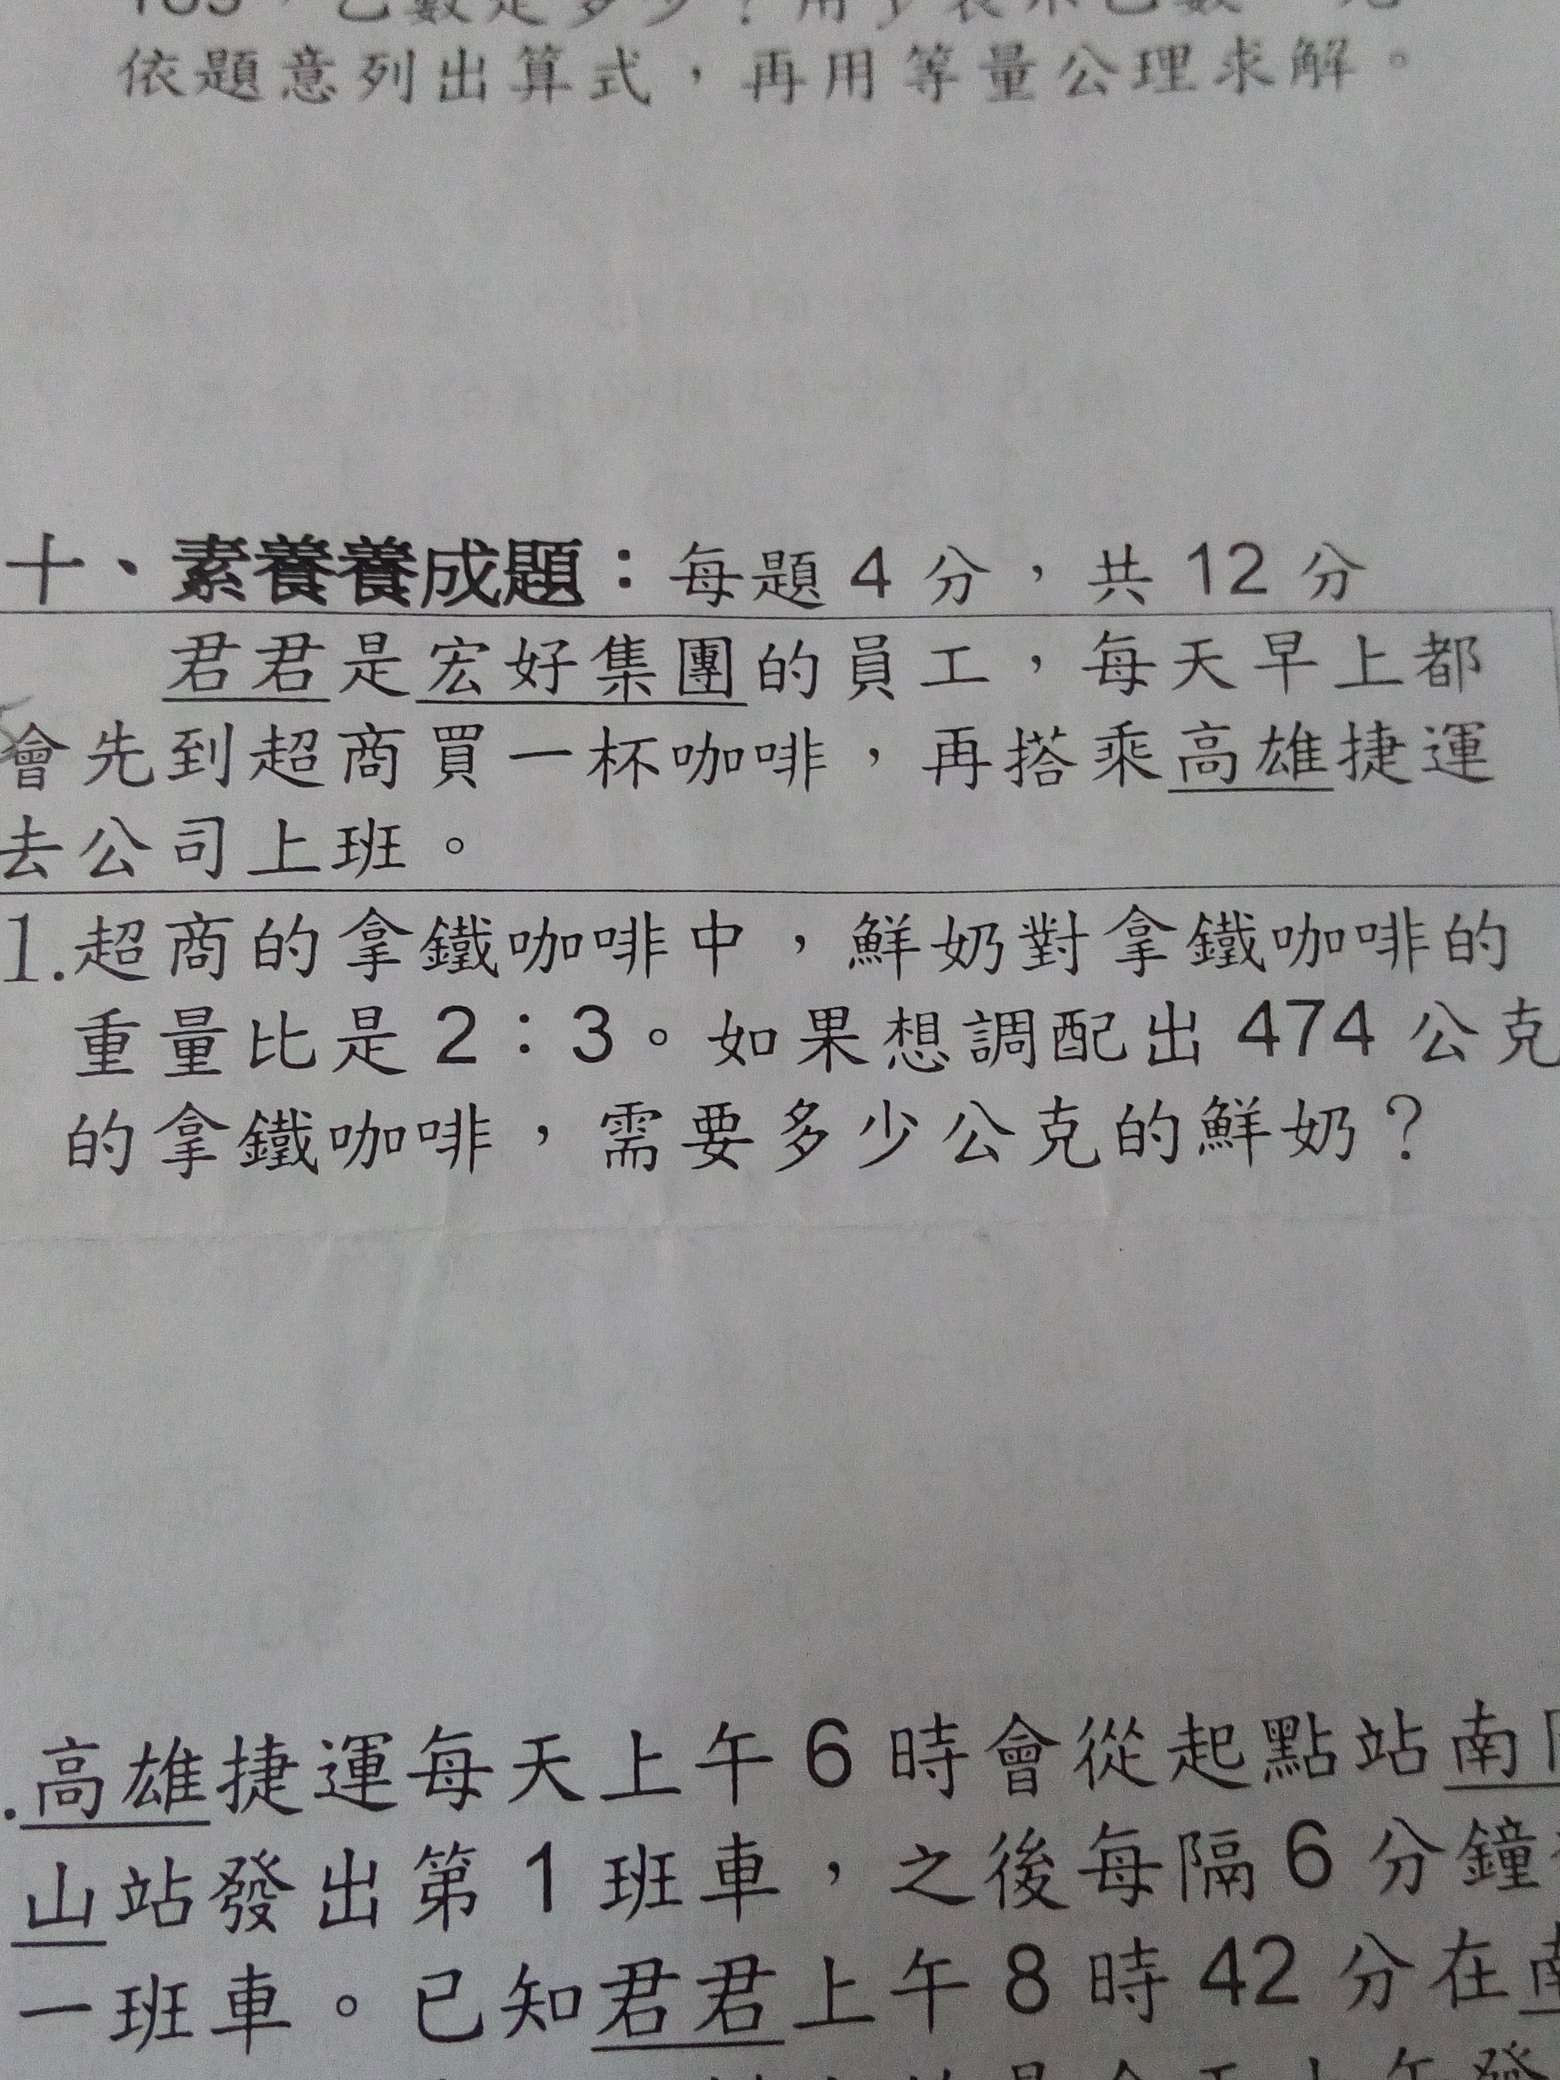 依題意列出算式，再用等量公理求解。
十、素養養成題：每題4分，共12分
君君是宏好集團的員工，每天早上都
會先到超商買一杯咖啡，再搭乘高雄捷運
去公司上班。
1.超商的拿鐵咖啡中，鮮奶對拿鐵咖啡的
重量比是2：3。如果想調配出474公克
的拿鐵咖啡，需要多少公克的鮮奶？
.高雄捷運每天上午6時會從起點站南
山站發出第1班車，之後每隔6分鐘
一班車。已知君君上午8時42分在